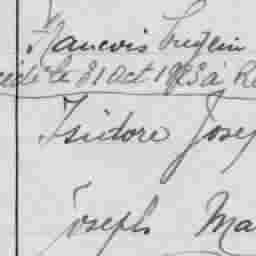 Francois Eugein
cédé le 31 Oct 19 à Re
Isidore Josep
Joseph Ma